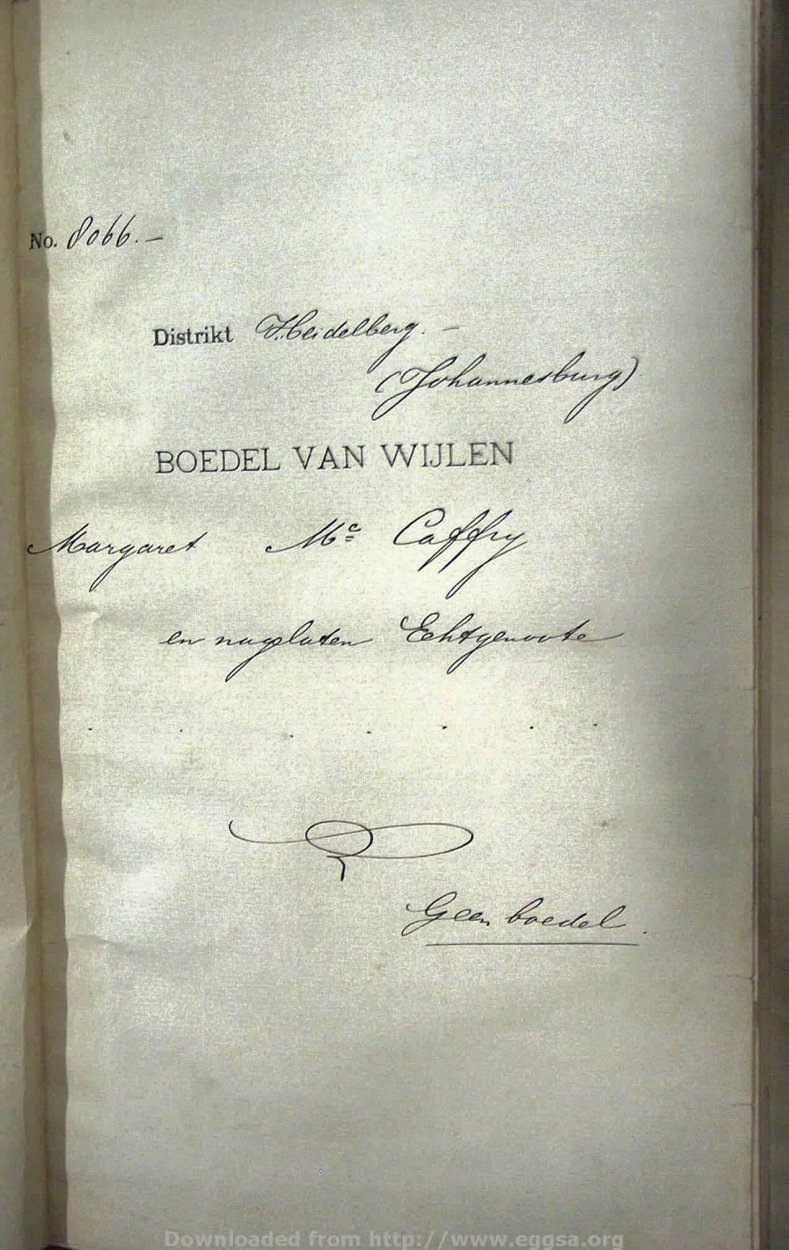 No. 8066.—
Distrikt Heidelberg. —
(Johannesburg)
BOEDEL VAN WIJLEN
Margaret Mc Caffry
en nagelaten Echtgenoote
Geen boedel.
Downloaded from http://www.eggsa.org